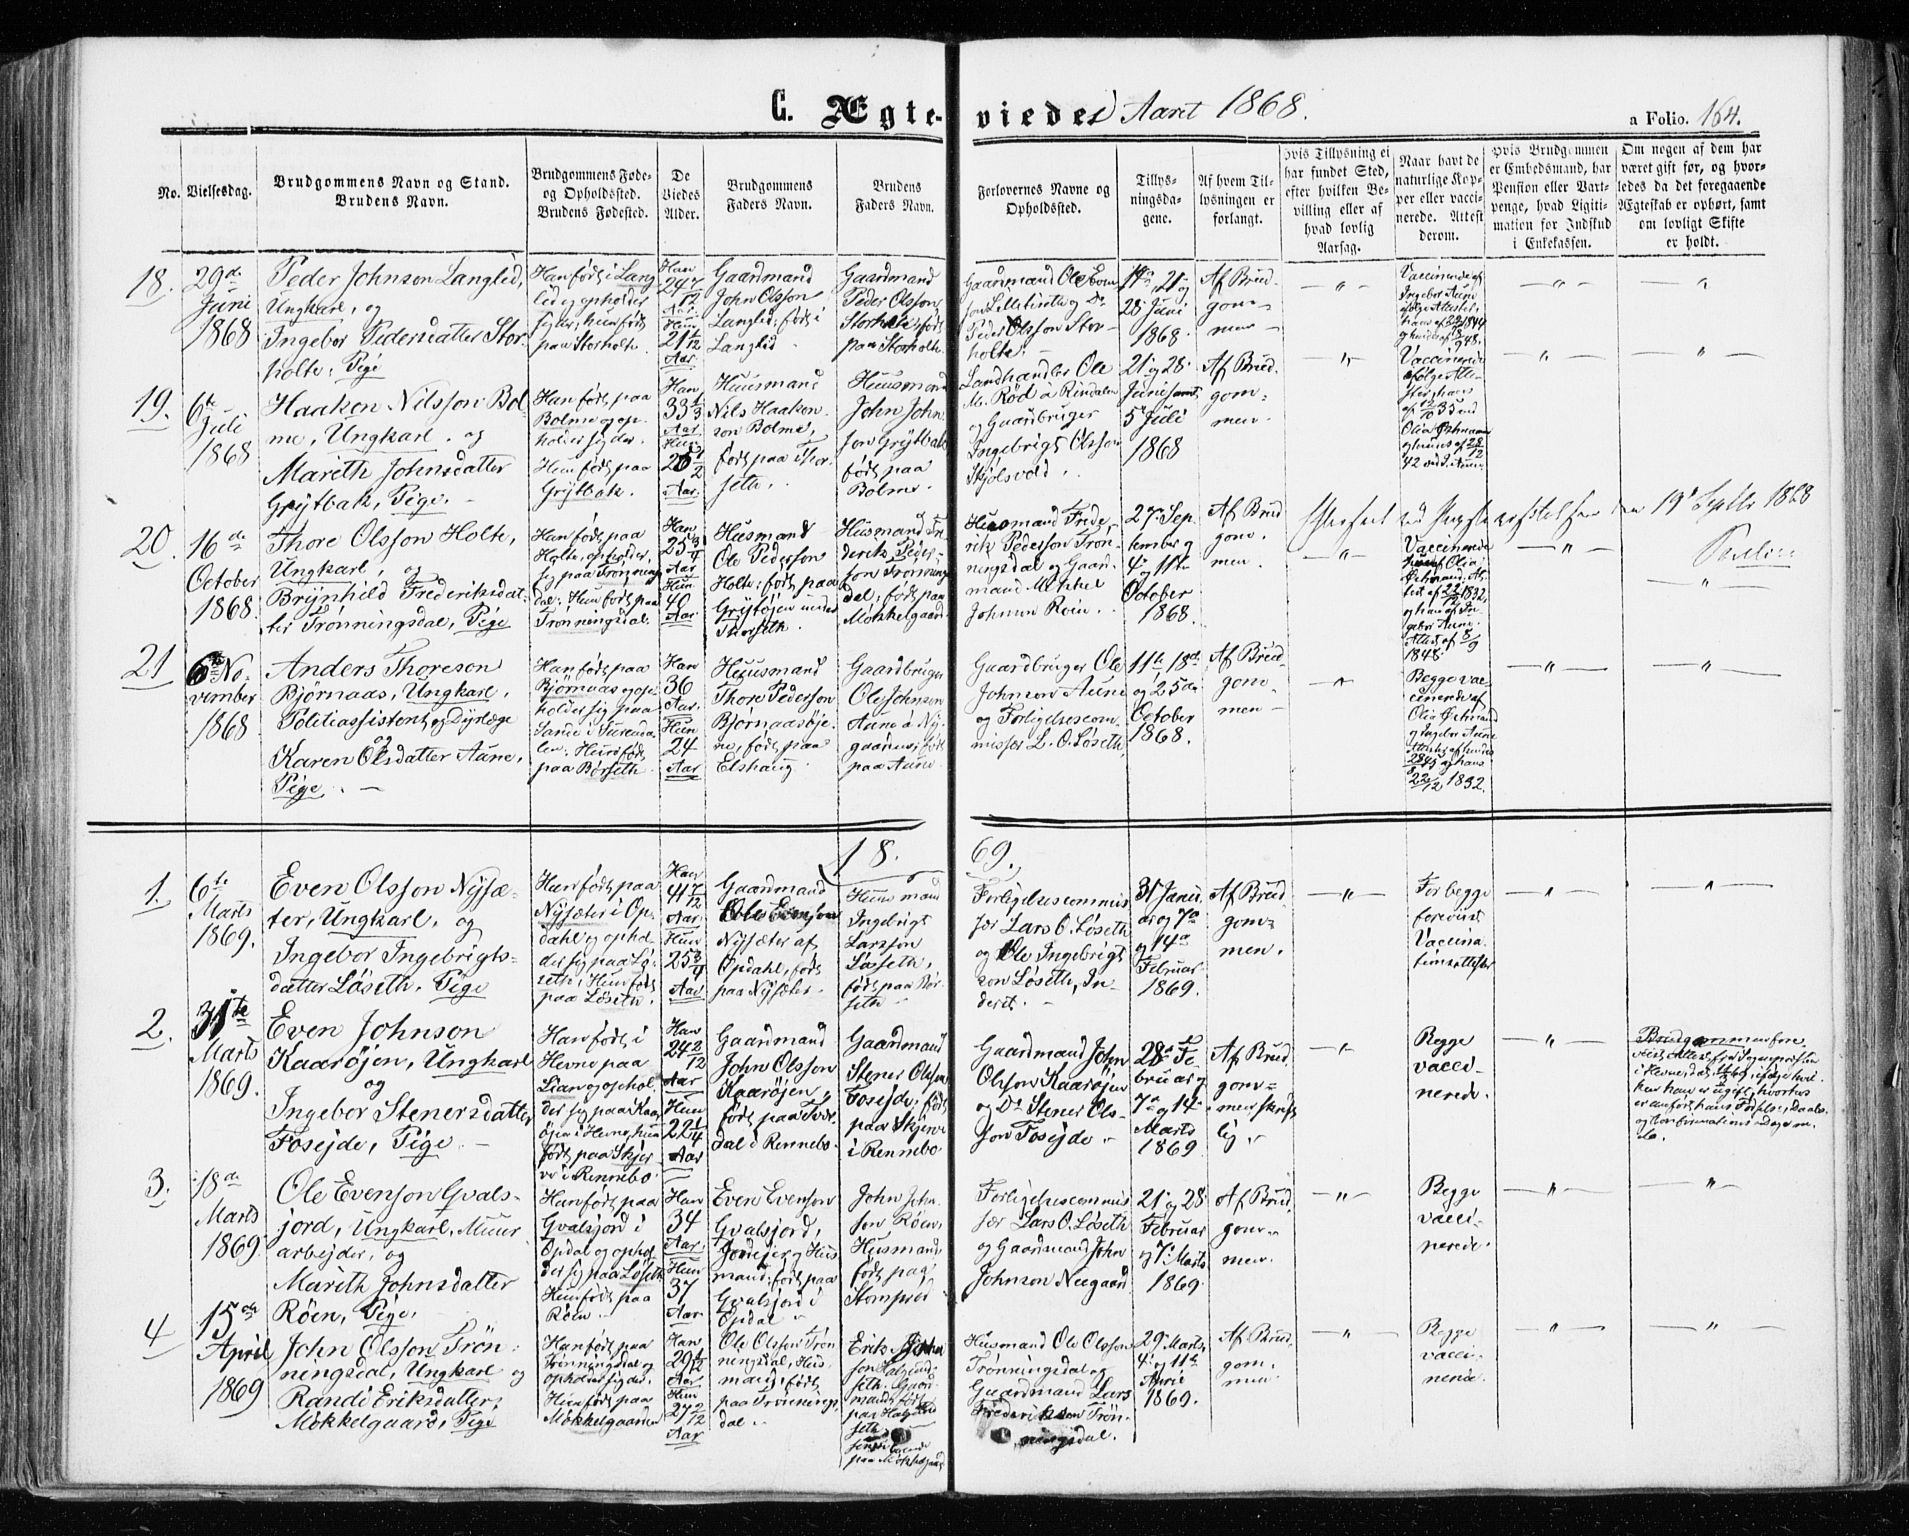 C. Ægteviede i Aaret 1868.
a Folio. 164.
No.
Vielsesdag.
Brudgommens Navn og Stand.
Brudens Navn.
Brudgommens Føde-
og Opholdssted.
Brudens Fødested.
De
Viedes
Alder.
Brudgommens
Faders Navn.
Brudens
Faders Navn.
Forlovernes Navne og
Opholdssted.
Tillys-
ningsda-
gene.
Af hvem Til-
lysningen er
forlangt.
Hvis Tillysning ei
har fundet Sted,
efter hvilken Be-
villing eller af
hvad lovlig
Aarsag.
Naar havt de
naturlige Kop-
per eller vacci-
nerede. Attest
derom.
Hvis Brudgommen
er Embedsmand, har
Pension eller Vart-
penge, hvad Ligiti-
mation for Indskud
i Enkekassen.
Om nogen af dem har
været gift før, og hvor-
ledes da det foregaaende
Ægteskab er ophørt, samt
om lovligt Skifte
er holdt.
18.
29de
Juni
1868
Peder Johnson Langlid,
Ungkarl, og
Ingebor Pedersdatter Stor-
holte, Pige
Han født i Lang
lid og opholder
sig der, hun født
paa Storholte.
Han
24 7/12
Aar
Hun
21 /12
Aar.
Gaardmand
John Olsson
Langlid; født i
Langlid
Gaardmand
Peder Olsson
Storholte; født
paa Storholte.
Gaardmand Ole Even
son Lilletiseth og Do
Peder Olsson Stor-
holte.
14de, 21 og
28 Juni
1868.
Af Brud
gom-
men
— " —
Vaccinerede af
Ingebor Aune
— " —
"
19.
6te
Juli
1868
Haakon Nilsson Bol
me, Ungkarl. og
Mareth Johnsdatter
Grytbak, Pige.
Han født paa
Bolme og op-
holder sig der.
Hun født paa
Grytbak.
Han
33 1/3
Aar
Hun
26 1/2
Aar.
Huusmand
Nils Haakon-
son Bolme,
født paa Thor-
seth.
Huusmand
John John-
son Grytbak
født paa
Bolme.
Landhandler Ole
M. Rød a Rindalen
og Gaardbruger
Ingebrigt Olsson
Skjølsvold.
21 og 28
Juni samt
5 Juli
1868
Af Brud
gom-
men
— " —
Vaccinerede
— " —
— " —
20.
16de
October
1868.
Thore Olsson Holte,
Ungkarl, og
Brynhild Frederiksdat-
ter Trønningsdal, Pige
Han født paa
Holte, opholder
sig paa Trønnings
dal. Hun født paa
Trønningsdal.
Han
25 3/4
Aar
Hun
40
Aar
Husmand
Ole Pederson
Holte; født paa
Grytøjen under
Thorseth.
Husmand Fre
derik Peder-
son Trønnings
dal; født paa
Mokkelgaard
Huusmand Frede-
rik Pederson Trøn-
ningsdal og Gaard-
mand Mikkel
Johnson Roin.
27 Sep
tember og
4 og 11te
October
1868.
Af Brud
gom-
men.
— " —
19d Septbr 1868
Vaccinerede
— " —
— " —
21
6te No-
vember
1868
Anders Thoreson
Bjørnaas, Ungkarl,
Politiassistent og Dyrlæge
og
Karen Olsdatter Aune,
Pige.
Han født paa
Bjørnaas og op-
holder sig paa
Sande i Surenda-
len. Hun født
paa Børseth
Han
36
Aar.
Hun
24
Aar
Huusmand
Thore Pederson
Bjørnaasøje-
ne, født paa
Elshaug
Gaardbruger
Ole Johnson
Aune a Ny-
gaarden; født
paa Aune
Gaardbruger Ole
Johnson Aune
og Forligelsescom-
missær L. O. Løseth.
11te, 18de
og 25de
October
1868.
Af Brud
gom-
men
— " —
Begge vac-
cinerede af
Olia Østensrud
og Ingebor Aune
22/12 1832.
— " —
— " —
1869.
1.
6te
Marts
1869.
Even Olsson Nysæ-
ter, Ungkarl, og
Ingebor Ingebrigts-
datter Løseth, Pige
Han født paa
Nysæter i Op-
dahl og ophol
der sig paa Lø-
seth; Hun født
paa Løseth.
Han
41 7/12
Aar.
Hun
25 3/4
Aar
Gaardmand
Ole Evenson
Nysæter af
Opdahl, født
paa Nysæter
Huusmand
Ingebrigt
Larsson
Løseth,
født paa Bør-
seth
Forligelsescommis
sær Lars O. Løseth
og Ole Ingebrigt
son Løseth, In-
derst.
31 Janu
ar og 7de
og 14de
Februar
1869.
Af Brud
gom-
men.
— " —
For begge
forevist
Vaccina
tionsattester
— " —
— " —
2.
31te
Marts
1869.
Even Johnson
Kaarøjen, Ungkarl
og
Ingebor Stenersdatter
Fosejde, Pige
Han født i
Hevne paa
Lian og ophol
der sig paa Kaar
øjen i Hevne, hun
født paa Skjer
ve i Rennebo
Han
24 2/12
Aar
Hun
22 1/4
Aar
Gaardmand
John Olsson
Kaarøjen,
født paa Tor
dal i Rennebo
Gaardmand
Stener Olsson
Fosejde; født
paa Skjerve
i Rennebo
Gaardmand John
Olsson Kaarøjen
og Do Stener Ols-
son Fosejde
28de Fe-
bruar og
7de og 14
Marts
1869
Af Brud
gom-
men skrift
lig
— " —
Begge
vacci-
nerede.
— " —
3.
18de
Marts
1869
Ole Evenson Gvals-
jord, Ungkarl, Muur
arbejder, og
Marith Johnsdatter
Röen, Pige
Han født paa
Gvalsjord i
Opdal og ophol
der sig paa Løseth
Hun født paa
Røen
Han
34
Aar.
Hun
37
Aar
Even Evenson
Gvalsjord,
Jordejer og Hus
mand; født paa
Gvalsjord i
Opdal
John John-
son Röen,
Husmand
født paa
Stomprød
Forligelsescommis
sær Lars O. Løseth
og Gaardmand John
Johnson Nergaard
21 og 28
Februar
og 7 Marts
1869
Af Brud
gom-
men.
— " —
Begge
vacci-
nerede.
— " —
— " —
4
15de
April
1869
John Olsson Trøn-
ningsdal, Ungkarl og
Randi Eriksdatter
Mokkelgaard, Pige
Han født paa
Trønningsdal og
opholder sig der.
Hun født paa
Mokkelgaarden
Han
29 1/12
Aar
Hun
27 2/12
Aar
Ole Olsson Trøn
ningsdal, Hus-
mand, født
paa Trønnings
dal
Erik John
son Halgund
seth, Gaard
mand, født
paa Halgund
seth
boende
paa Mokkelgaard
Husmand Ole Olsson
Trønningsdal og
Gaardmand Lars
Frederiksen Trøn-
ningsdal.
29 Marts,
4 og 11te
April
1869.
Af Brud
gom.
men
— " —
Begge
vacci
nerede
— " —
— " —